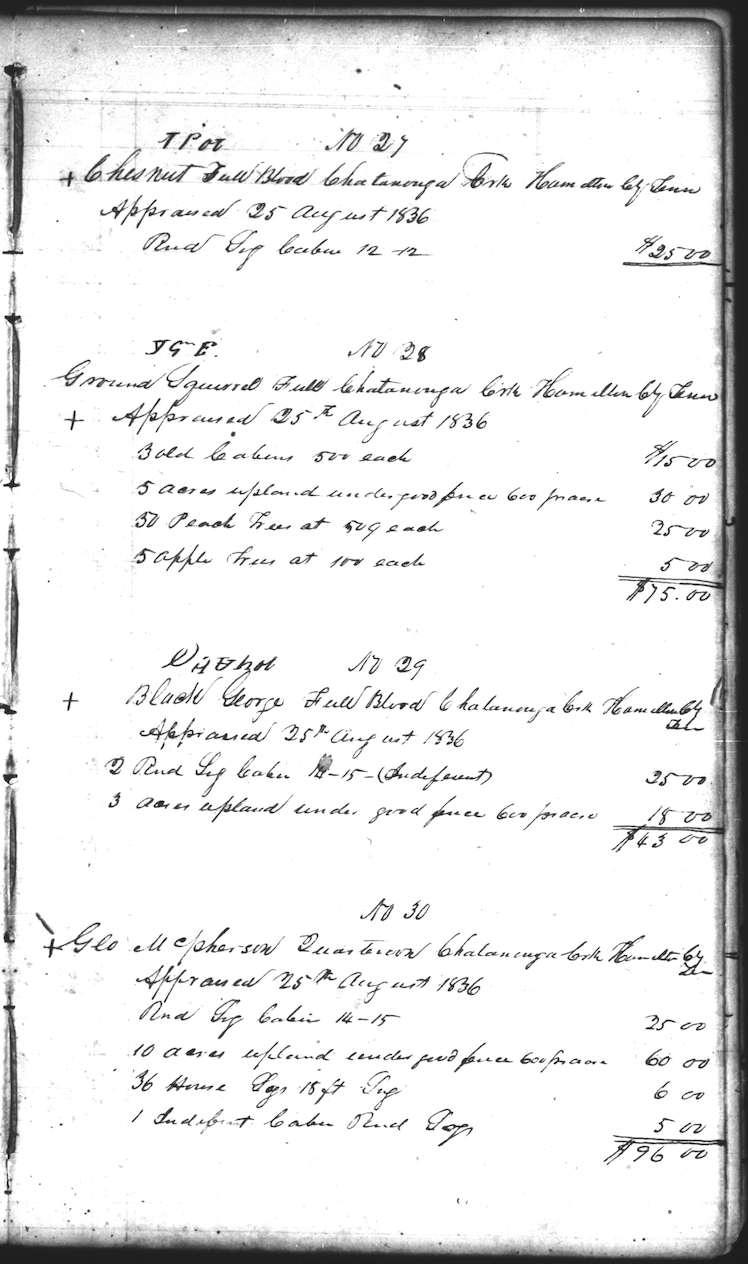 No 27
+ Chesnut Full Blood Chatanonga Crk Hamelton Cty Tenn
Appraised 25 August 1836
Rnd Log Cabin 12-12 $25 00
No 28
Ground Squirrel Full Chatanonga Crk Hamelton Cty Tenn
+ Appraised 25th August 1836
3 old Cabens 500 each $15 00
5 acres upland under good fence 600 pr acre 30 00
50 Peach Trees at 50 each 25 00
5 apple Trees at 100 each 5 00
$75.00
No 29
+ Black George Full Blood Chatanonga Crk Hamelton Cty
Ten
Appraised 25th August 1836
2 Rnd Log Cabin 14-15-(Indiferent) 25 00
3 acres upland under good fence 600 pr acre 18 00
$43 00
No 30
+ Geo McPherson Quarteroon Chatanonga Crk Hamelton Cty
Ten
Appraised 25th August 1836
Rnd Log Cabin 14-15 25 00
10 acres upland under good fence 600 pr acre 60 00
36 House Logs 18 ft Lg 6 00
1 Indifrent Cabin Rnd Logs 5 00
$96 00